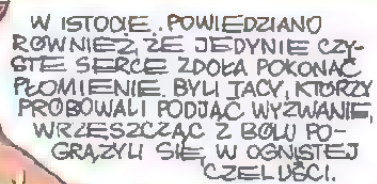 W ISTOCIE.. POWIEDZIANO
RÓWNIEŻ, ŻE JEDYNIE CZY-
STE SERCE ZDOŁA POKONAĆ
PŁOMIENIE. BYLI TACY, KTÓRZY
PRÓBOWALI PODJĄĆ WYZWANIE,
WRZESZCZĄC Z BÓLU PO-
GRĄŻYLI SIĘ W OGNISTEJ
CZELUŚCI.